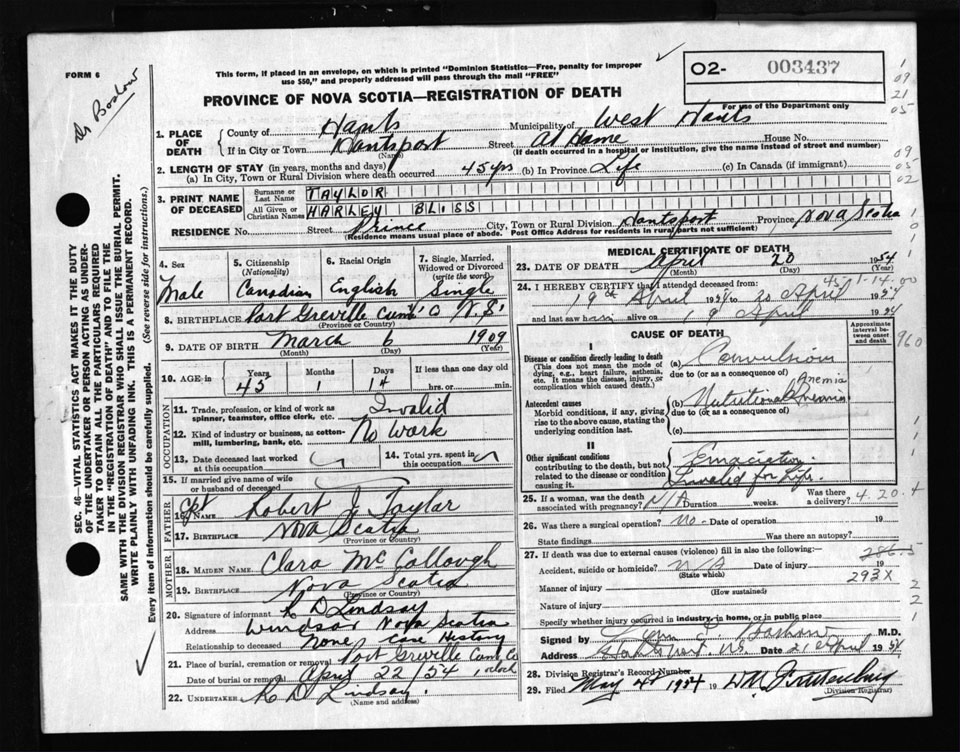 FORM 6
This form, if placed in an envelope, on which is printed "Dominion Statistics—Free, penalty for improper
use $50," and properly addressed will pass through the mail "FREE"
O2- 003437
For use of the Department only
PROVINCE OF NOVA SCOTIA—REGISTRATION OF DEATH
1. PLACE OF DEATH County of Hants Municipality of West Hants
If in City or Town Hantsport (Name) Street At Home House No.
(If death occurred in a hospital or institution, give the name instead of street and number)
2. LENGTH OF STAY (in years, months and days)
(a) In City, Town or Rural Division where death occurred 45 yrs (b) In Province Life (c) In Canada (if immigrant)
3. PRINT NAME OF DECEASED Surname or Last Name TAYLOR
All Given or Christian Names HARLEY BLISS
RESIDENCE No. Street Prince City, Town or Rural Division Hantsport Province Nova Scotia
(Residence means usual place of abode. Post Office Address for residents in rural parts not sufficient)
4. Sex Male
5. Citizenship (Nationality) Canadian
6. Racial Origin English
7. Single, Married, Widowed or Divorced (write the word) Single
8. BIRTHPLACE Port Greville N.S. (Province or Country)
9. DATE OF BIRTH March 6 1909
(Month) (Day) (Year)
10. AGE in Years 45 Months 1 Days 14 If less than one day old hrs. or min.
OCCUPATION
11. Trade, profession, or kind of work as spinner, teamster, office clerk, etc. Invalid
12. Kind of industry or business, as cotton-mill, lumbering, bank, etc. No Work
13. Date deceased last worked at this occupation
14. Total yrs. spent in this occupation
15. If married give name of wife or husband of deceased
FATHER
16. Name Cpt Robert J Taylor
17. BIRTHPLACE Nova Scotia
(Province or Country)
MOTHER
18. MAIDEN NAME Clara McCollough
19. BIRTHPLACE Nova Scotia
(Province or Country)
20. Signature of informant K D Lindsay
Address Windsor Nova Scotia
Relationship to deceased None Case History
21. Place of burial, cremation or removal Port Greville Cum. Co
Date of burial or removal April 22/54 1 oclock
22. UNDERTAKER K D Lindsay.
(Name and address)
MEDICAL CERTIFICATE OF DEATH
23. DATE OF DEATH April 20 1954
(Month) (Day) (Year)
24. I HEREBY CERTIFY that I attended deceased from:
19th April 1954 to 20 April 1954
and last saw him alive on 19 April 1954
CAUSE OF DEATH
Approximate interval between onset and death
I
Disease or condition directly leading to death
(This does not mean the mode of dying, e.g., heart failure, asthenia, etc. It means the disease, injury, or complication which caused death.)
(a) Convulsion
due to (or as a consequence of)
Antecedent causes
Morbid conditions, if any, giving rise to the above cause, stating the underlying condition last.
(b) Nutritional Anemia
due to (or as a consequence of)
(c)
II
Other significant conditions
contributing to the death, but not related to the disease or condition causing it.
Emaciation
Invalid for Life.
25. If a woman, was the death associated with pregnancy? N/A Duration weeks. Was there a delivery?
4.20.4
26. Was there a surgical operation? no - Date of operation 19
State findings Was there an autopsy?
27. If death was due to external causes (violence) fill in also the following:—
286.5
Accident, suicide or homicide? N/A (State which) Date of injury 19
293X
Manner of injury
(How sustained)
Nature of injury
Specify whether injury occurred in industry, in home, or in public place
Signed by M.D.
Address Hantsport, N.S. Date 21 April 1954
28. Division Registrar's Record Number
29. Filed May 4th 1954 19
(Division Registrar)
SEC. 46—VITAL STATISTICS ACT MAKES IT THE DUTY
OF THE UNDERTAKER OR PERSON ACTING AS UNDER-
TAKER TO OBTAIN ALL THE PARTICULARS REQUIRED
IN THE "REGISTRATION OF DEATH" AND TO FILE THE
SAME WITH THE DIVISION REGISTRAR WHO SHALL ISSUE THE BURIAL PERMIT.
WRITE PLAINLY WITH UNFADING INK. THIS IS A PERMANENT RECORD.
Every item of information should be carefully supplied. (See reverse side for instructions.)
960